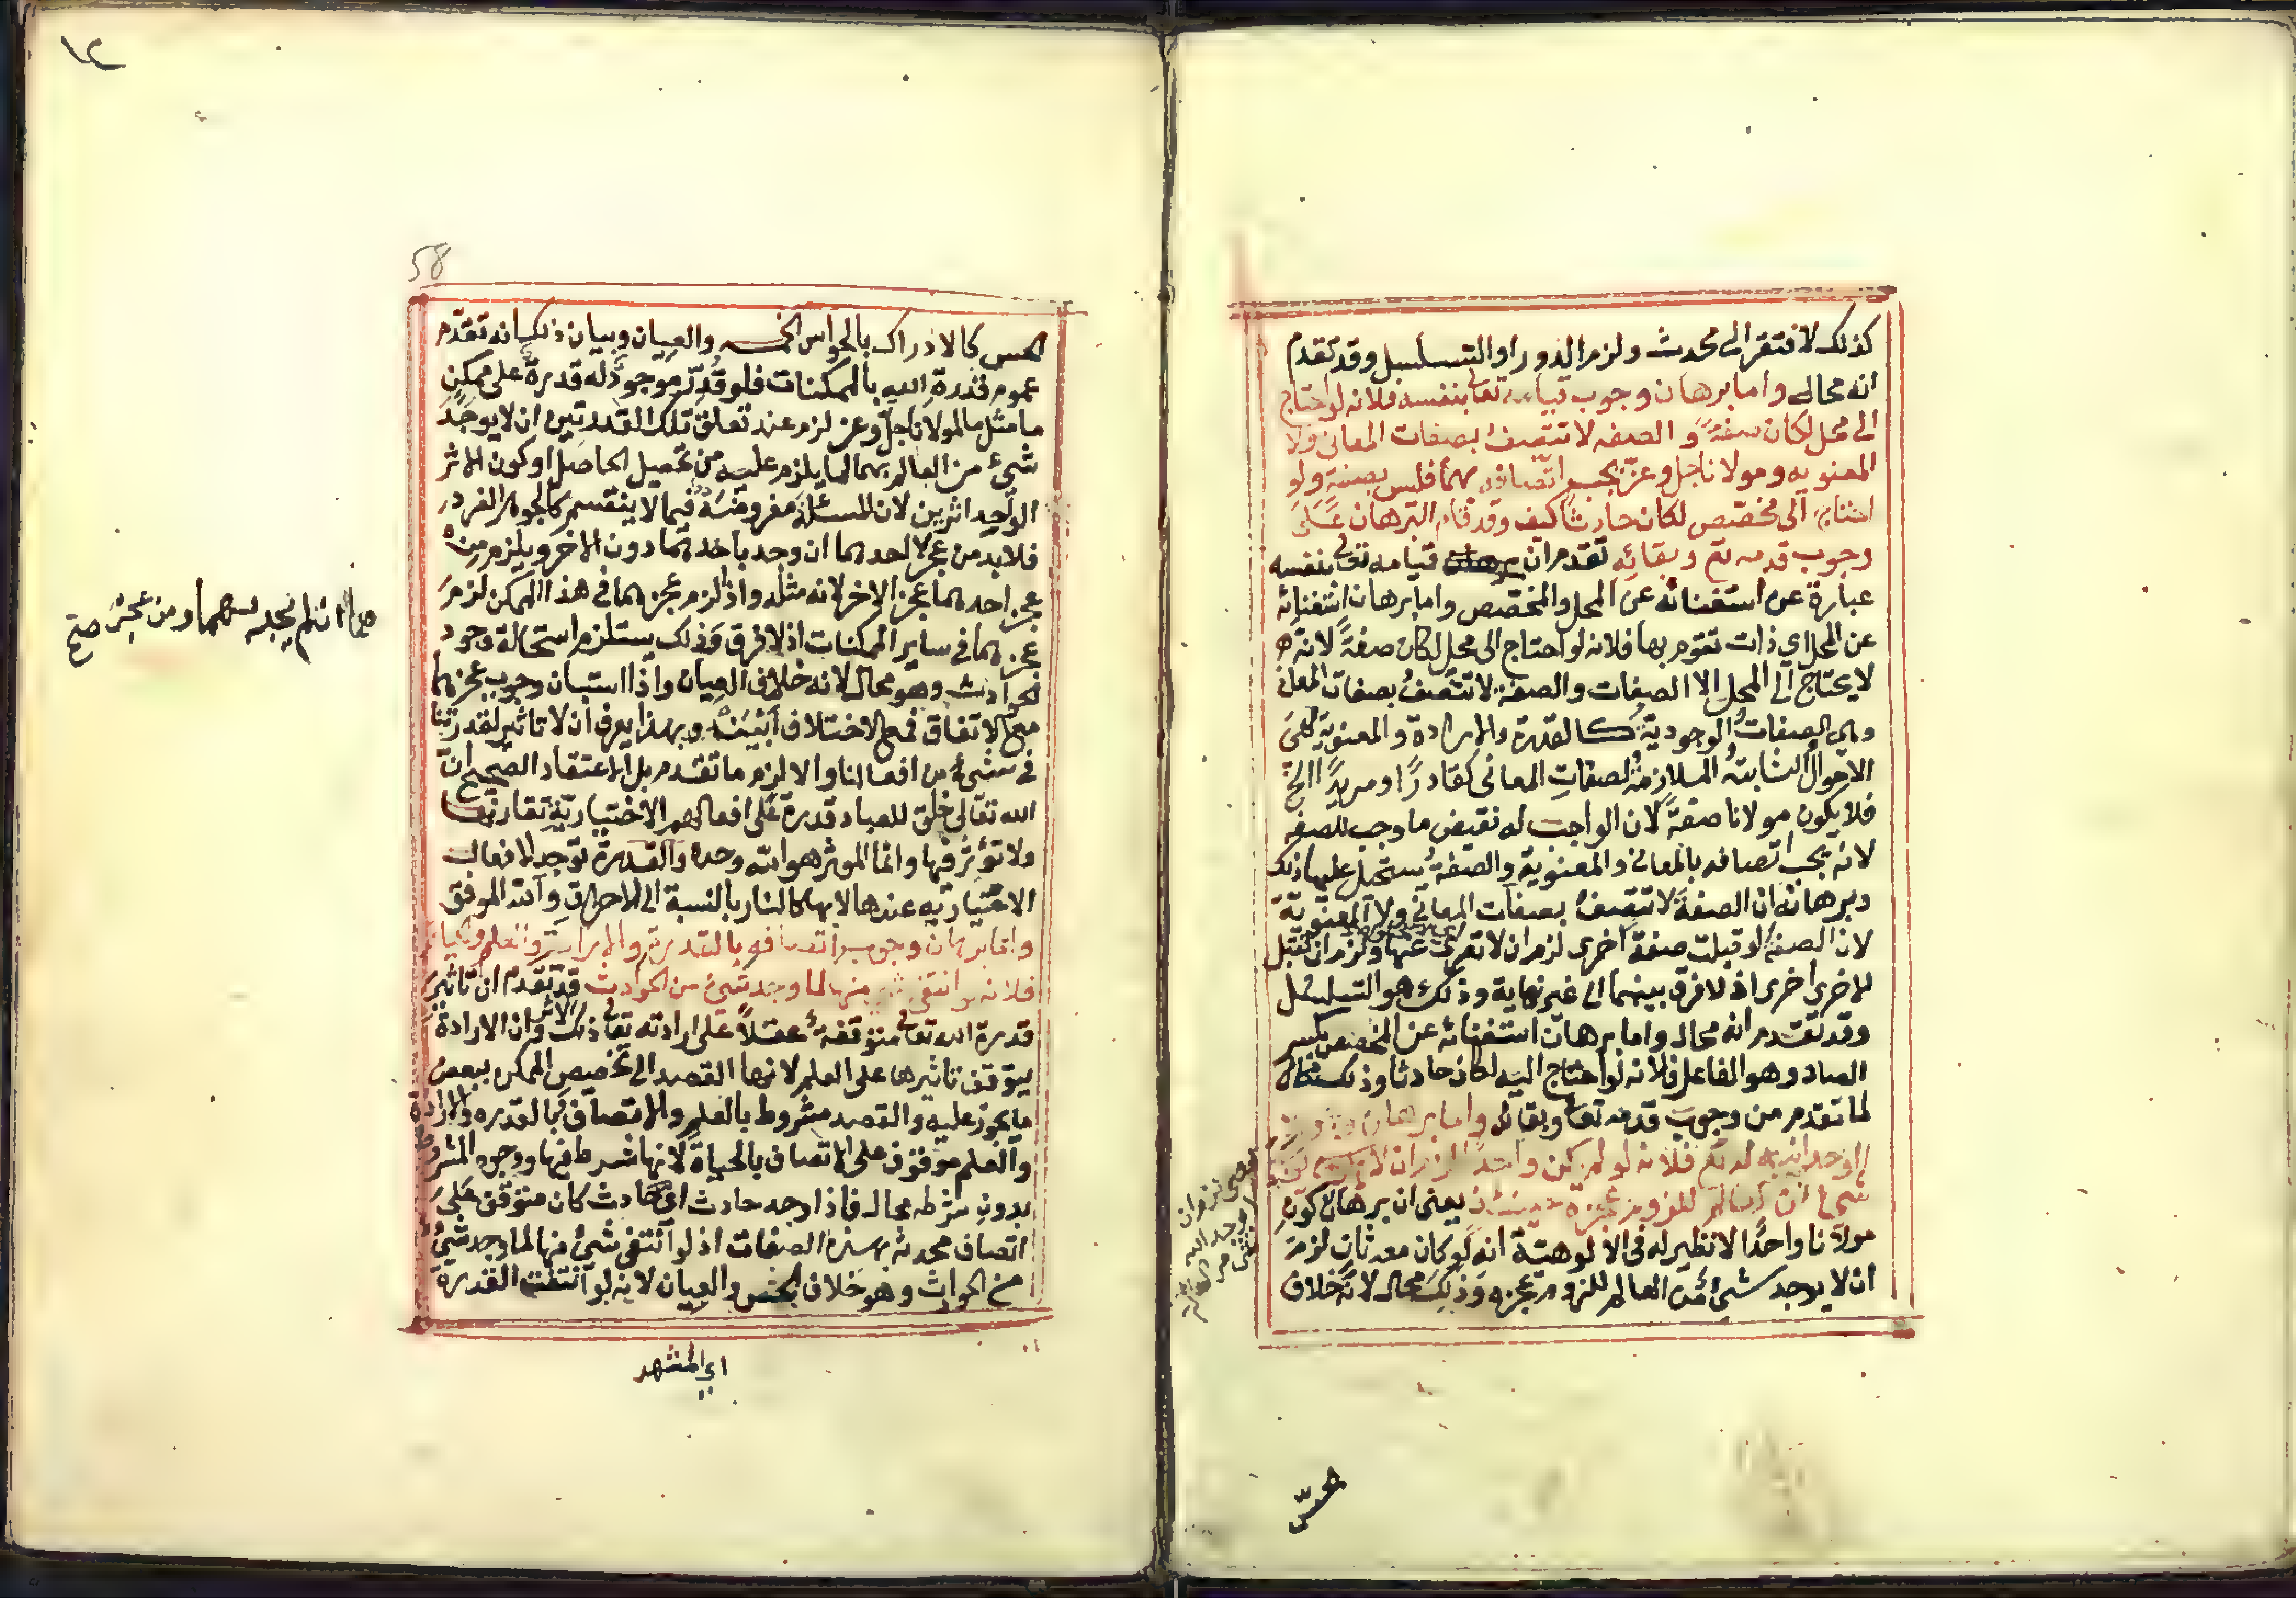 كذلك لافتقر الى محدث ولزم الدور او التسلسل وقد تقدم
انه محال واما برهان وجوب قيامه تعالى بنفسه فلانه لو احتاج
الى محل لكان صفة والصفه لا تتصف بصفات المعاني ولا
المعنويه ومولانا جل وعز يجب اتصافه بهما فليس بصفة ولو
احتاج الى مخصص لكان حادثا كيف وقد قام البرهان على
وجوب قدمه تع وبقائه تقدم ان برهان قيامه تعالى بنفسه
عبارة عن استغنائه عن المحل والمخصص واما برهان استغنائه
عن المحل اي ذات تقوم بها فلانه لو احتاج الى محل لكان صفة لانه
لا يحتاج الى المحل الا الصفات والصفة لا تتصف بصفات المعاني
وهي الصفات الوجودية كالقدرة والارادة والمعنوية هي
الاحوال الثابتة الملازمة لصفات المعاني كقادرا او مريدا الخ
فلا يكون مولانا صفة لان الواجب له نقيض ما وجب للصفه
لانه يجب اتصافه بالمعاني والمعنوية والصفة يستحيل عليها ذلك
وبرهانه ان الصفة لا تتصف بصفات المعاني ولا المعنوية
لان الصفة لو قبلت صفة اخرى لزم ان لا تعرى عنها ولزم ان تقبل
الاخرى اخرى اذ لا فرق بينهما الى غير نهاية وذلك هو التسلسل
وقد تقدم انه محال واما برهان استغنائه عن المخصص بكسر
الصاد وهو الفاعل فلانه لو احتاج اليه لكان حادثا وذلك محال
لما تقدم من وجوب قدمه تعالى وبقائه واما برهان وجوب
الوحدانيه له تع فلانه لو لم يكن واحدا لزم ان لا يوجد
شئ من العالم للزوم عجزه حينئذ يعني ان برهان كون
مولانا واحدا لا نظير له في الالوهية انه لو كان معه ثان لزم
ان لا يوجد شئ من العالم للزوم عجزه وذلك محال لانه خلاف
الحس
58
١٢
الحس كالادراك بالحواس الخمسه والعيان وبيان ذلك انه تقدم
عموم قدرة الله بالممكنات فلو قدر موجود له قدرة على ممكن
ما مثل ما لمولانا جل وعز لزم عند تعلق تلك القدرتين ان لا يوجد
شئ من العالم بهما لما يلزم عليه من تحصيل الحاصل او كون الاثر
الواحد اثرين لان المسئلة مفروضة فيما لا ينقسم كالجوهر الفرد
فلا بد من عجز احدهما ان وجد باحدهما دون الاخر ويلزم من
عجز احدهما عجز الاخر لانه مثله واذا لزم عجزهما في هذا الممكن لزم
عجزهما في ساير الممكنات اذ لا فرق وذلك يستلزم استحالة وجود
الحوادث وهو محال لانه خلاف العيان واذا استبان وجوب عجزهما
مع الاتفاق فمع الاختلاف ابين وبهذا يعرف ان لا تاثير لقدرتنا
في شئ من افعالنا والا لزم ما تقدم بل الاعتقاد الصحيح ان
الله تعالى خلق للعباد قدرة على افعالهم الاختيارية تقارنها
ولا تؤثر فيها وانما المؤثر هو الله وحده والقدرة توجد الافعال
الاختياريه عندها لا بها كالنار بالنسبة الى الاحراق والله الموفق
واما برهان وجوب اتصافه بالقدرة والارادة والعلم والحياة
فلانه لو انتفى شئ منها لما وجد شئ من الحوادث قد تقدم ان تاثير
قدرة الله تعالى متوقفة عقلا على ارادته تعالى ذلك الاثر وان الارادة
يتوقف تاثيرها على العلم لانها القصد الى تخصيص الممكن ببعض
ما يجوز عليه والقصد مشروط بالعلم والاتصاف بالقدره والارادة
والعلم موقوف على الاتصاف بالحياة لانها شرط فيها ووجود المشروط
بدون شرطه محال فاذا وجد حادث اي حادث كان متوقف على
اتصاف محدثه بهذه الصفات اذ لو انتفى شئ منها لما وجد شئ
من الحوادث وهو خلاف الحس والعيان لانه لو انتفت القدرة
ان لم يوجد بهما ومن عجز صح